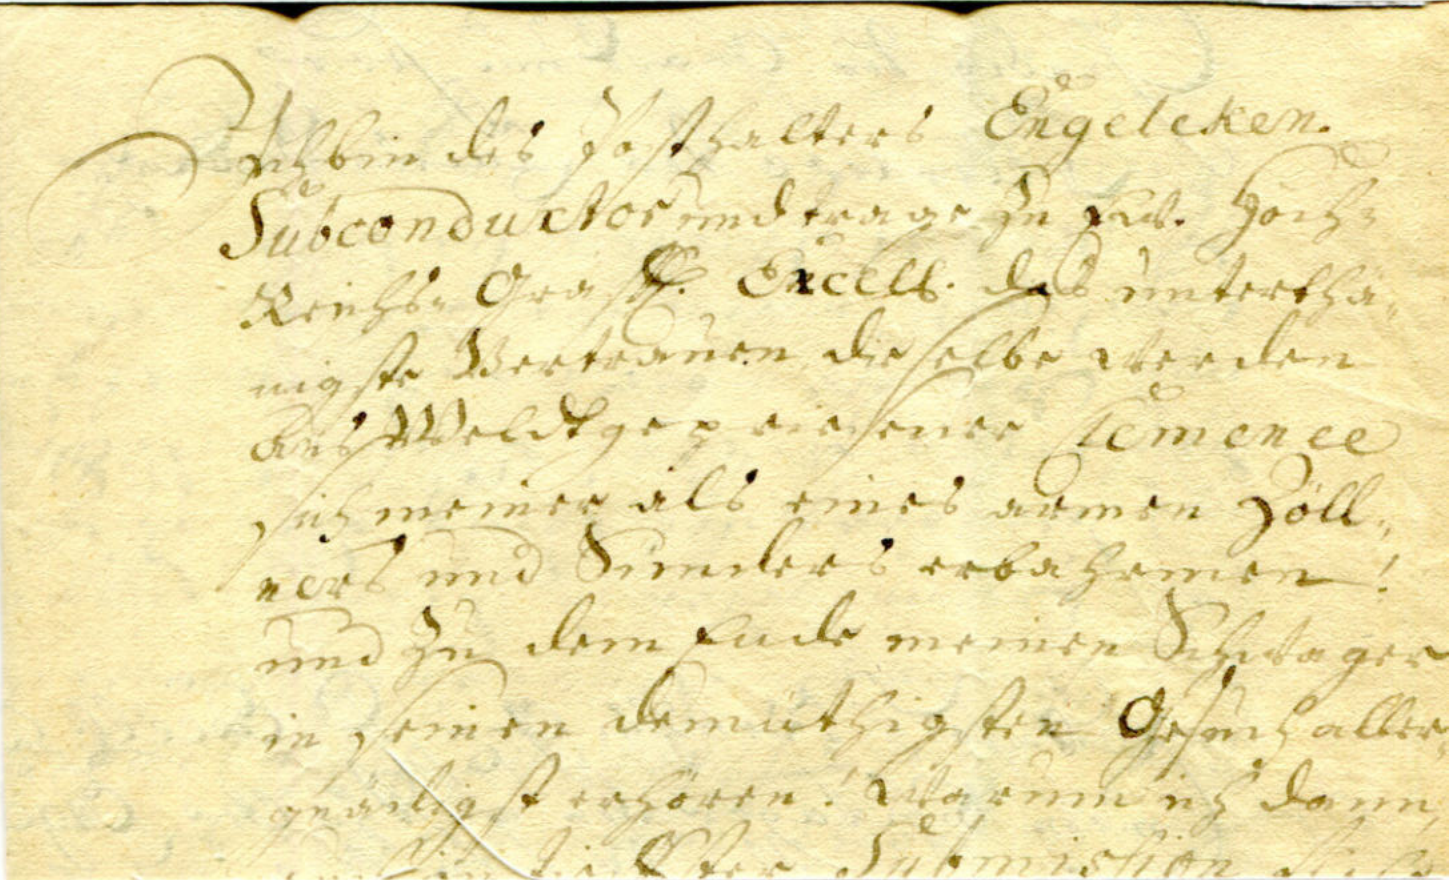 Ich bin des Posthalters Engeleken.
Subconductor und trage zu Ew. Hoch-
Reichs- Gräffl. Excell. das unterthä-
nigste Vertrauen, dieselbe werden
aus Weldtgepriesener Clemence
sich meiner als eines armen Zöll-
ners und Sünders erbahrmen!
und zu dem Ende meinen Schwager
in seinen demüthigsten Gesuch aller-
gnädigst erhören! Warum ich dann
Submission